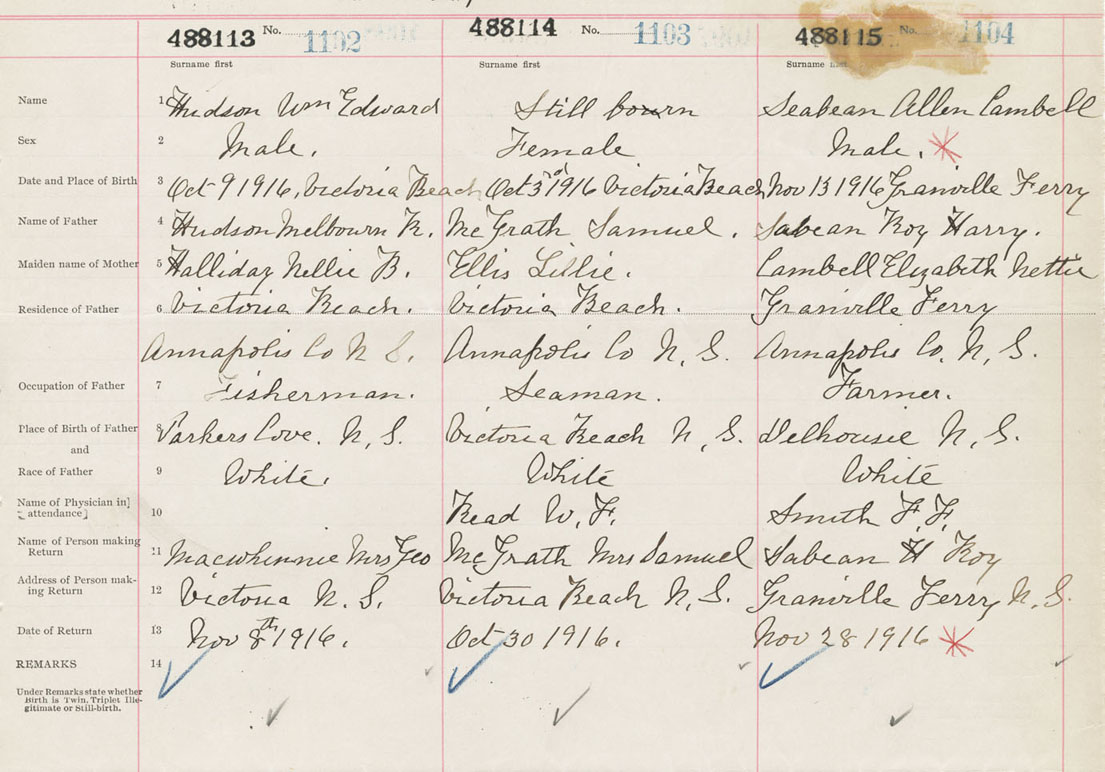 488113 No. 1102 488114 No. 1103 488115 No. 1104
Surname first Surname first Surname
Name 1 Hudson Wm Edward Still bourn Seabean Allen Cambell
Sex 2 Male. Female Male.
Date and Place of Birth 3 Oct 9 1916, Victoria Beach Oct 3rd 1916 Victoria Beach Nov 13 1916 Granville Ferry
Name of Father 4 Hudson Melbourn R. Mc Grath Samuel. Sabean Roy Harry.
Maiden name of Mother 5 Halliday Nellie B. Ellis Lillie. Cambell Elizabeth Nettie
Residence of Father 6 Victoria Beach. Victoria Beach. Granville Ferry
Annapolis Co N S. Annapolis Co N, S. Annapolis Co. N, S.
Occupation of Father 7 Fisherman. Seaman. Farmer.
Place of Birth of Father 8 Parkers Cove. N, S. Victoria Beach N, S. Delhousie N, S.
and
Race of Father 9 White. White White
Name of Physician in]
[attendance] 10 Read W. F. Smith F. F.
Name of Person making
Return 11 Macwhinnie Mrs Geo Mc Grath Mrs Samuel Sabean H Roy
Address of Person mak-
ing Return 12 Victoria N. S. Victoria Beach N, S. Granville Ferry N. S.
Date of Return 13 Nov 8th 1916. Oct 30 1916. Nov 28 1916
REMARKS 14
Under Remarks state whether
Birth is Twin, Triplet Ille-
gitimate or Still-birth.